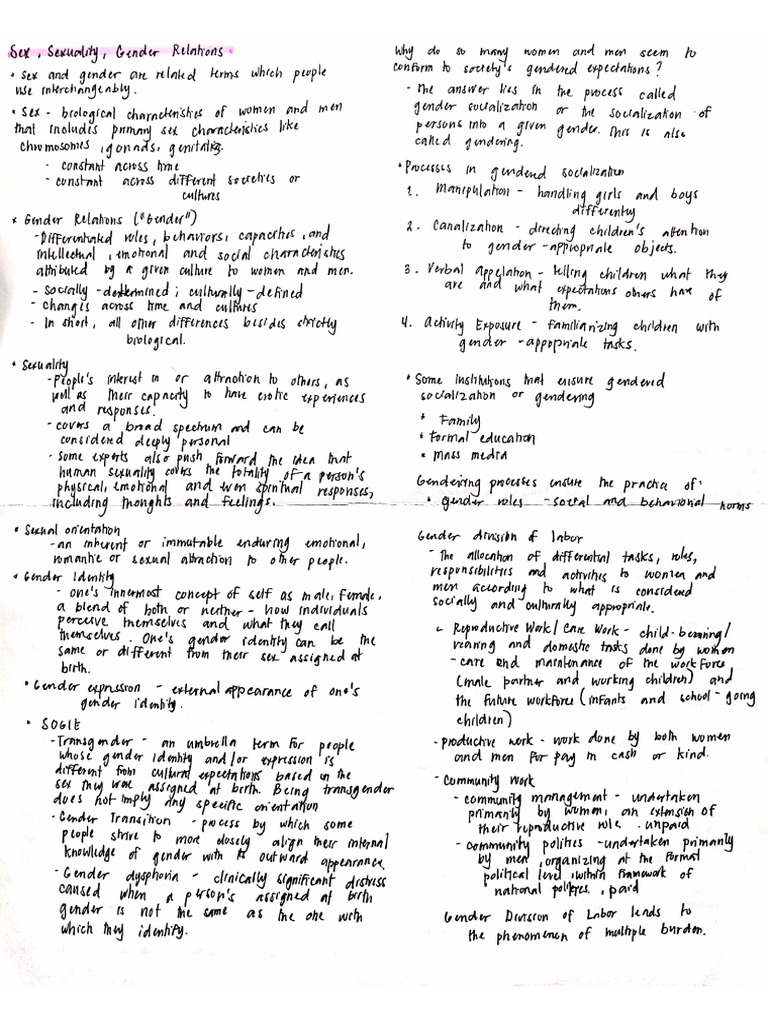 Sex, Sexuality, Gender Relations
• Sex and gender are related terms which people
use interchangeably.
• Sex - biological characteristics of women and men
that includes primary sex characteristics like
chromosomes, gonads, genitalia.
- constant across time
- constant across different societies or
cultures
* Gender Relations ("Gender")
- Differentiated roles, behaviors, capacities, and
intellectual, emotional and social characteristics
attributed by a given culture to women and men.
- socially-determined; culturally-defined
- changes across time and cultures
- In short, all other differences besides strictly
biological.
• Sexuality
- People's interest in or attraction to others, as
well as their capacity to have erotic experiences
and responses.
- covers a broad spectrum and can be
considered deeply personal
- some experts also push forward the idea that
human sexuality covers the totality of a person's
physical, emotional and even spiritual responses,
including thoughts and feelings.
• Sexual orientation
- an inherent or immutable enduring emotional,
romantic or sexual attraction to other people.
• Gender Identity
- one's innermost concept of self as male, female,
a blend of both or neither - how individuals
perceive themselves and what they call
themselves. One's gender identity can be the
same or different from their sex assigned at
birth.
• Gender expression - external appearance of one's
gender identity.
• SOGIE
- Transgender - an umbrella term for people
whose gender identity and/or expression is
different from cultural expectations based on the
sex they were assigned at birth. Being transgender
does not imply any specific orientation
- Gender Transition - process by which some
people strive to more closely align their internal
knowledge of gender with its outward appearance.
- Gender dysphoria - clinically significant distress
caused when a person's assigned at birth
gender is not the same as the one with
which they identify.
Why do so many women and men seem to
conform to society's gendered expectations?
- The answer lies in the process called
gender socialization or the socialization of
persons into a given gender. This is also
called gendering.
• Processes in gendered socialization
1. Manipulation - handling girls and boys
differently
2. Canalization - directing children's attention
to gender-appropriate objects.
3. Verbal Appelation - telling children what they
are and what expectations others have of
them.
4. Activity Exposure - familiarizing children with
gender-appopriate tasks.
• Some institutions that ensure gendered
socialization or gendering
• Family
• Formal education
• mass media
Gendering processes ensure the practice of:
• gender roles - social and behavioral norms
Gender division of labor
- The allocation of differential tasks, roles,
responsibilities and activities to women and
men according to what is considered
socially and culturally appropriate.
Reproductive Work/ Care Work - child-bearing/
rearing and domestic tasks done by women
- care and maintenance of the workforce
(male partner and working children) and
the future workforce (infants and school-going
children)
- productive work - work done by both women
and men for pay in cash or kind.
- Community Work
- community management - undertaken
primarily by women, an extension of
their reproductive role. unpaid
- community politics - undertaken primarily
by men, organizing at the formal
political level, within framework of
national politics, paid
Gender Division of Labor leads to
the phenomenon of multiple burden.